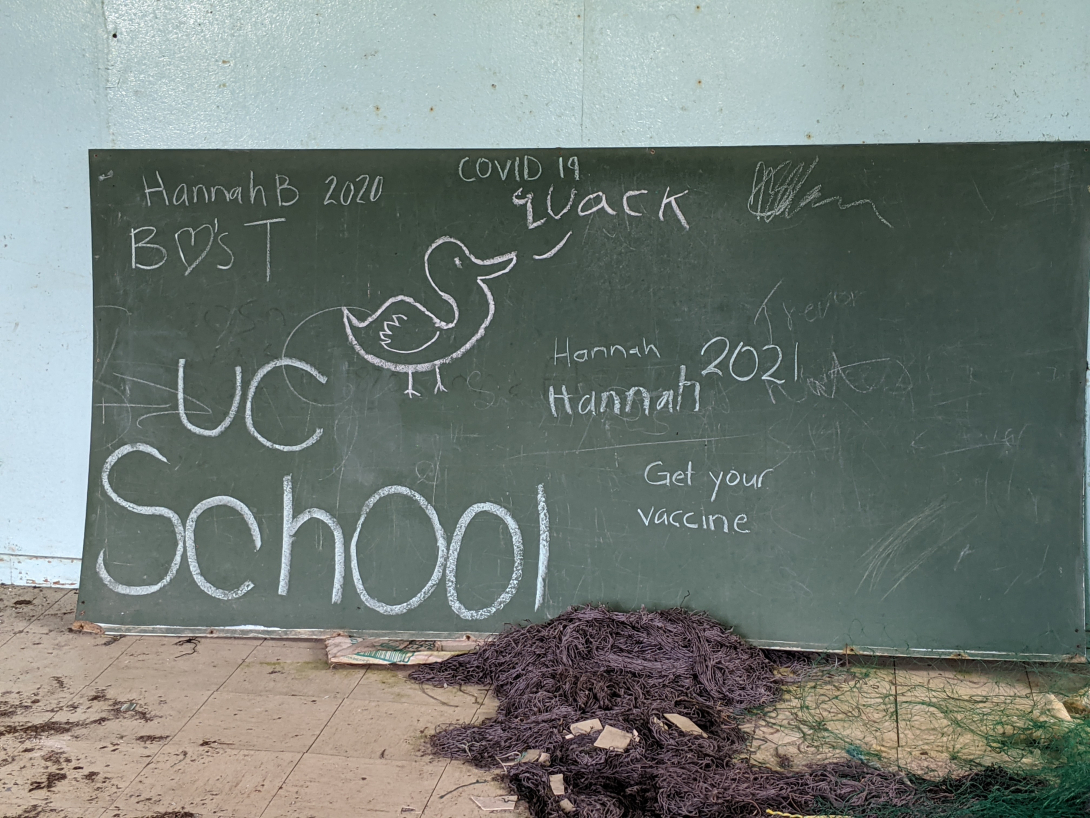 Hannah B 2020
B♡'s T
COVID 19
quack
UC
School
Trevor
Hannah
Hannah 2021
Get your
vaccine